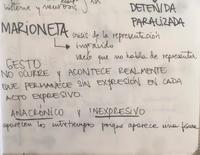 sistema y
DETENIDA
PARALIZADA
MARIONETA
de la representación
inspirado
vacío que no habla de representar
GESTO
NO OCURRE Y ACONTECE REALMENTE
QUE PERMANECE SIN EXPRESIÓN EN CADA
ACTO EXPRESIVO.
ANACRÓNICO Y INEXPRESIVO
aparecen los entretiempos porque aparece una